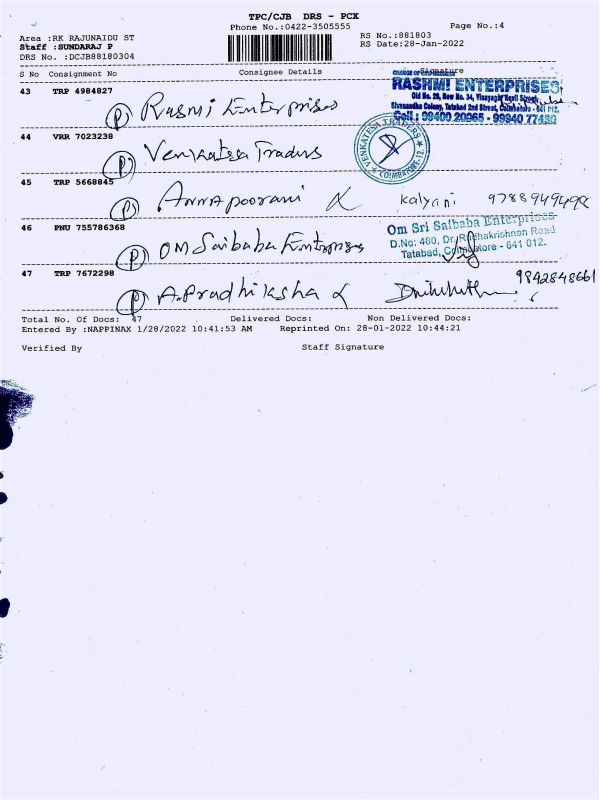 TPC/CJB DRS - PCX
Phone No.:0422-3505555
Page No.:4
Area :RK RAJUNAIDU ST
RS No.:881803
Staff :SUNDARAJ P
RS Date:28-Jan-2022
DRS No. :DCJB88180304
S No Consignment No Consignee Details Signature
43 TRP 4984827
(P) Rasmi Enterprises
RASHMI ENTERPRISES
Old No. 28, New No. 34,
Sivanandha Colony, Tatabad 2nd Street, Coimbatore - 641 012.
Cell : 99400 20965 - 99940 77432
44 VRR 7023238
(P) Venkatesa Traders
VENKATESA TRADERS
COIMBATORE-12.
45 TRP 5668845
Annapoorani
kalyani
46 PNU 755786368
(P) Om Saibaba Enterprises
Om Sri Saibaba Enterprises
D.No: 480, Dr. Radhakrishnan Road
Tatabad, Coimbatore - 641 012.
47 TRP 7672298
(P) A.Pradhiksha
9842848661
Total No. Of Docs: 47 Delivered Docs: Non Delivered Docs:
Entered By :NAPPINAX 1/28/2022 10:41:53 AM Reprinted On: 28-01-2022 10:44:21
Verified By Staff Signature